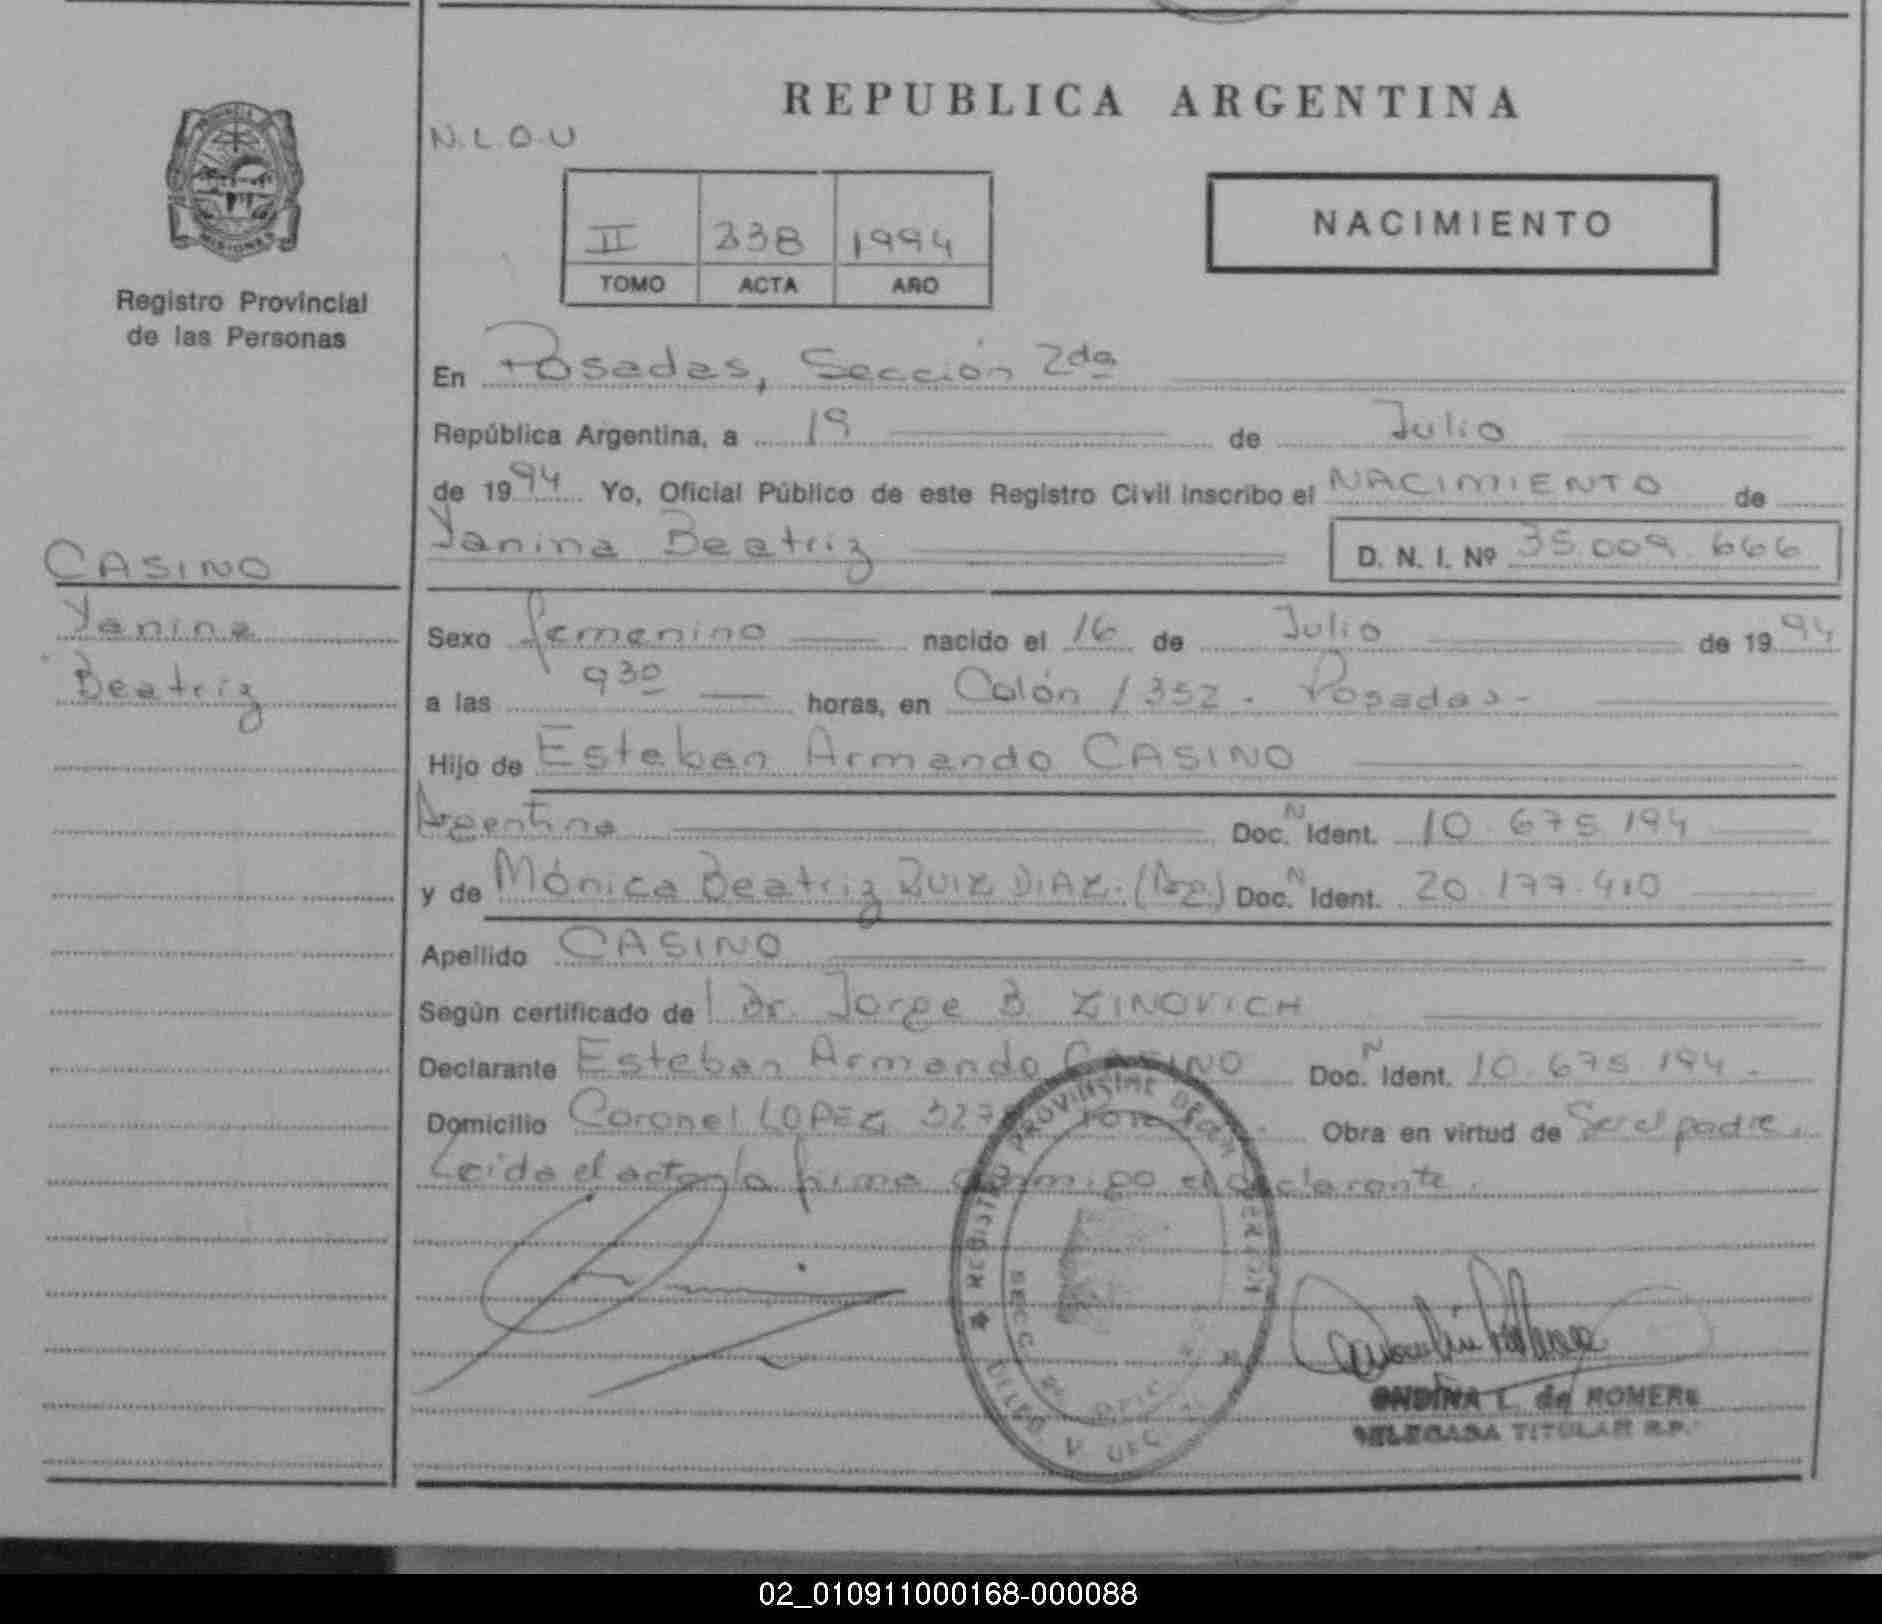 REPUBLICA ARGENTINA
N.L.O.U
NACIMIENTO
II 338 1994
TOMO ACTA AÑO
MISIONES
Registro Provincial
de las Personas
En Posadas, Sección 2da
República Argentina, a 19 de Julio
de 1994 Yo, Oficial Público de este Registro Civil inscribo el NACIMIENTO de
Yanina Beatriz D. N. I. Nº 35.009.666
CASINO
Yanina
Beatriz
Sexo femenino nacido el 16 de Julio de 1994
a las 9 30 horas, en Colón 1352 - Posadas -
Hijo de Esteban Armando CASINO
Argentina Doc. N Ident. 10.675.194
y de Mónica Beatriz RUIZ DIAZ. (Arg.) Doc. N Ident. 20.177.410
Apellido CASINO
Según certificado de l Dr. Jorge B. ZINOVICH
Declarante Esteban Armando CASINO Doc. N Ident. 10.675.194.
Domicilio Coronel LOPEZ Obra en virtud de Ser el padre.
Leída el acta la firma conmigo el declarante.
REGISTRO PROVINCIAL DE LAS PERSONAS
ONDINA L. de ROMERO
DELEGADA TITULAR R.P.
02_010911000168-000088